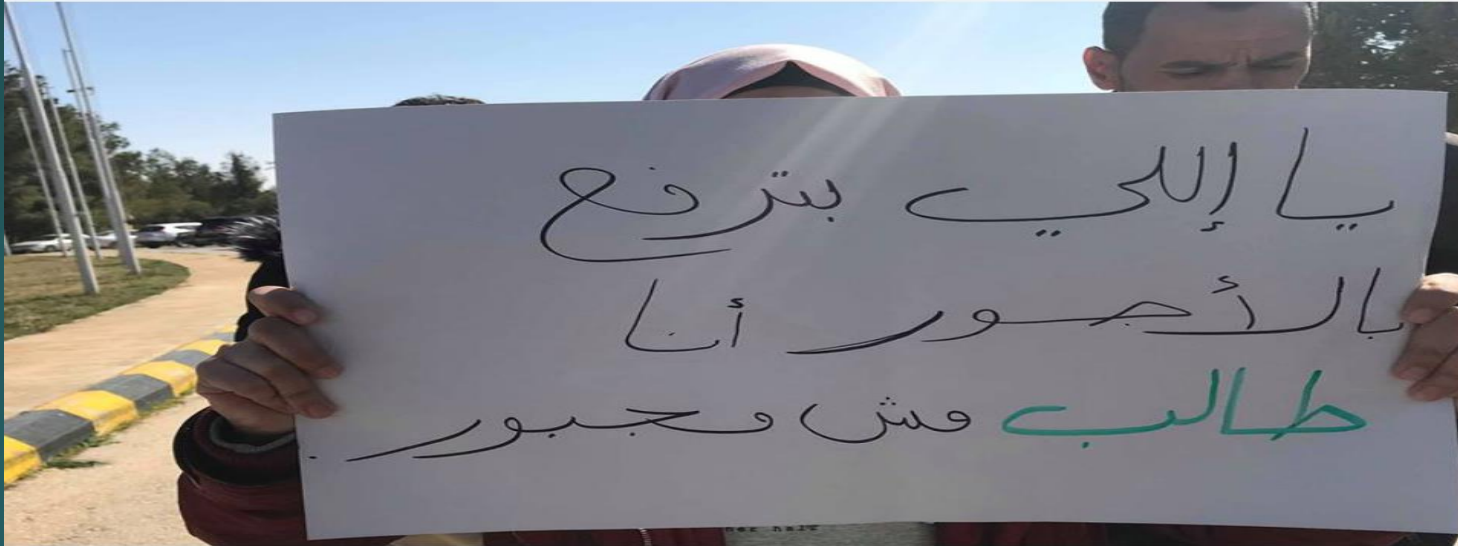 يا إللي بترفع
بالأجور أنا
طالب مش مجبور.